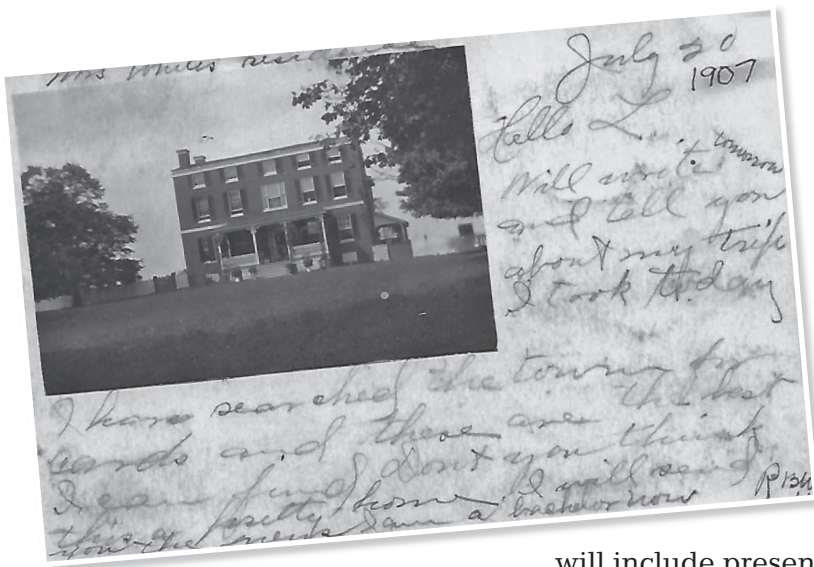 Mrs Whites residence
July 20
1907
Hello L..
Will write tomorrow
and tell you
about my trip
I took today
I have searched the town for
cards and these are the best
I can find Dont you think
this a pretty home I will send
you the news I am a bachelor now
will include presen